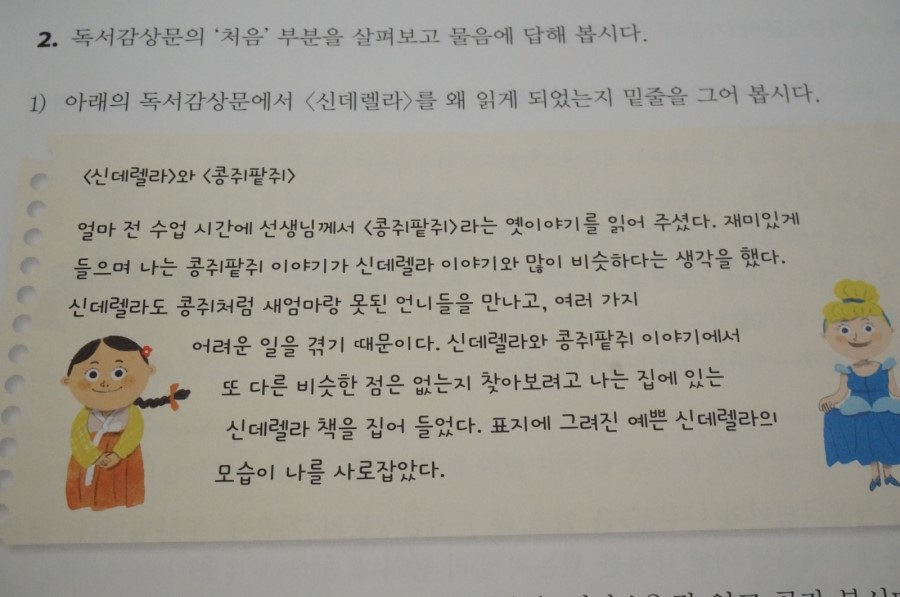 2. 독서감상문의 ‘처음’ 부분을 살펴보고 물음에 답해 봅시다.
1) 아래의 독서감상문에서 〈신데렐라〉를 왜 읽게 되었는지 밑줄을 그어 봅시다.
〈신데렐라〉와 〈콩쥐팥쥐〉
얼마 전 수업 시간에 선생님께서 〈콩쥐팥쥐〉라는 옛이야기를 읽어 주셨다. 재미있게
들으며 나는 콩쥐팥쥐 이야기가 신데렐라 이야기와 많이 비슷하다는 생각을 했다.
신데렐라도 콩쥐처럼 새엄마랑 못된 언니들을 만나고, 여러 가지
어려운 일을 겪기 때문이다. 신데렐라와 콩쥐팥쥐 이야기에서
또 다른 비슷한 점은 없는지 찾아보려고 나는 집에 있는
신데렐라 책을 집어 들었다. 표지에 그려진 예쁜 신데렐라의
모습이 나를 사로잡았다.